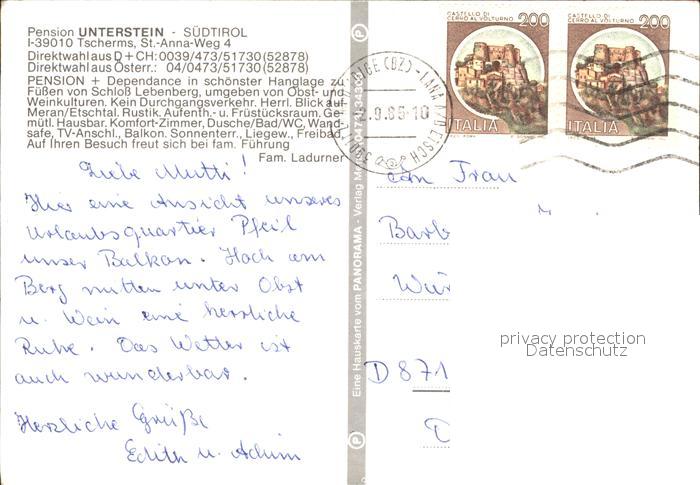 Pension UNTERSTEIN - SÜDTIROL
I-39010 Tscherms, St.-Anna-Weg 4
Direktwahl aus D + CH: 0039/473/51730 (52878)
Direktwahl aus Österr.: 04/0473/51730 (52878)
PENSION + Dependance in schönster Hanglage zu
Füßen von Schloß Lebenberg, umgeben von Obst- und
Weinkulturen. Kein Durchgangsverkehr. Herrl. Blick auf
Meran/Etschtal. Rustik. Aufenth.- u. Frühstücksraum. Ge-
mütl. Hausbar. Komfort-Zimmer, Dusche/Bad/WC, Wand-
safe, TV-Anschl., Balkon. Sonnenterr., Liegew., Freibad.
Auf Ihren Besuch freut sich bei fam. Führung
Fam. Ladurner
Liebe Mutti!
Hier eine Ansicht unseres
Urlaubsquartier Pfeil
unser Balkon. Hoch am
Berg mitten unter Obst
u. Wein eine herrliche
Ruhe. Das Wetter ist
auch wunderbar.
Herzliche Grüße
Edith u. Achim
Eine Hauskarte vom PANORAMA - Verlag
CASTELLO DI
CERRO AL VOLTURNO
200
ITALIA
CASTELLO DI
CERRO AL VOLTURNO
200
ITALIA
.9.85-10
Frau
Barb
D 871
privacy protection
Datenschutz